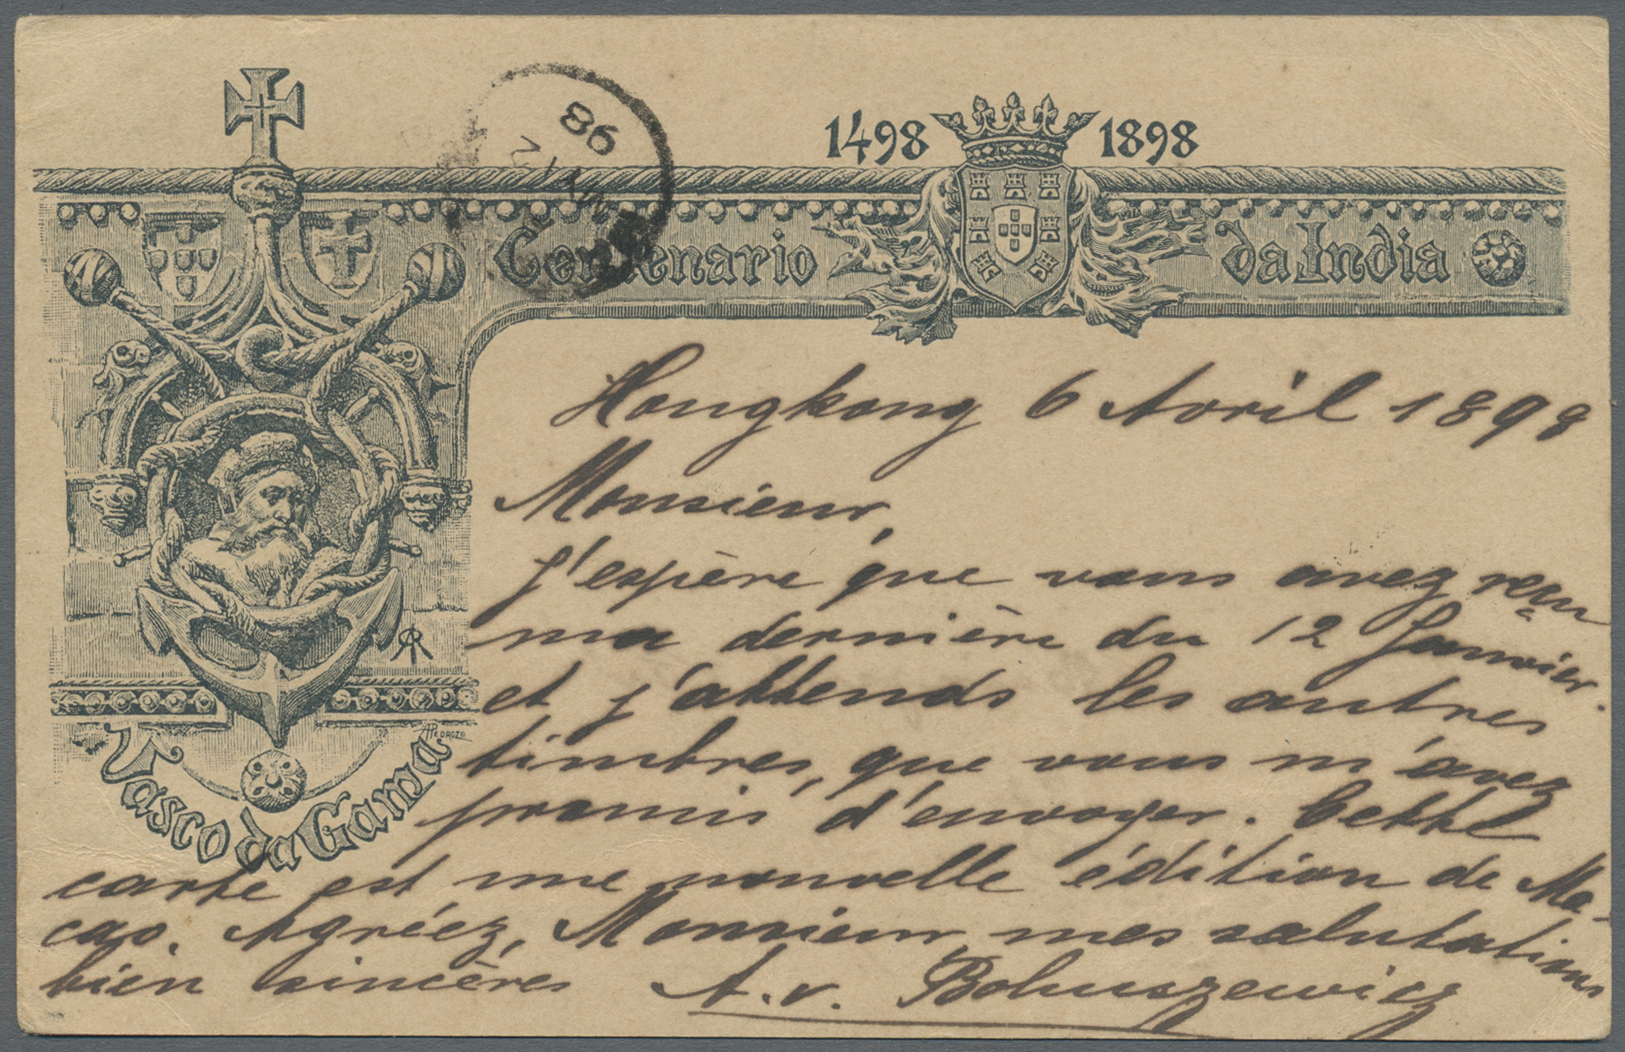 1498 1898
Centenario da India
98
MY 12
Hongkong 6 Avril 1898
Monsieur,
j'espère que vous avez reçu
ma dernière du 12 Janvier.
et j'attends les autres
timbres, que vous m'avez
promis d'envoyer. Cette
carte est une nouvelle édition de Ma-
cao. Agréez, Monsieur, mes salutations
bien sincères A. v. Bohuszewicz
Vasco da Gama
PEDROZO